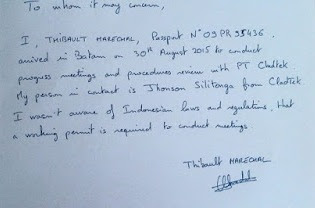 To whom it may concern,
I, THIBAULT MARECHAL, Passport N° 09PR95436,
arrived in Batam on 30th August 2015 to conduct
progress meetings and procedures review with PT Cladtek
My person in contact is Jhonson Silitonga from Cladtek
I wasn't aware of Indonesian laws and regulations, that
a working permit is required to conduct meetings.
Thibault MARECHAL